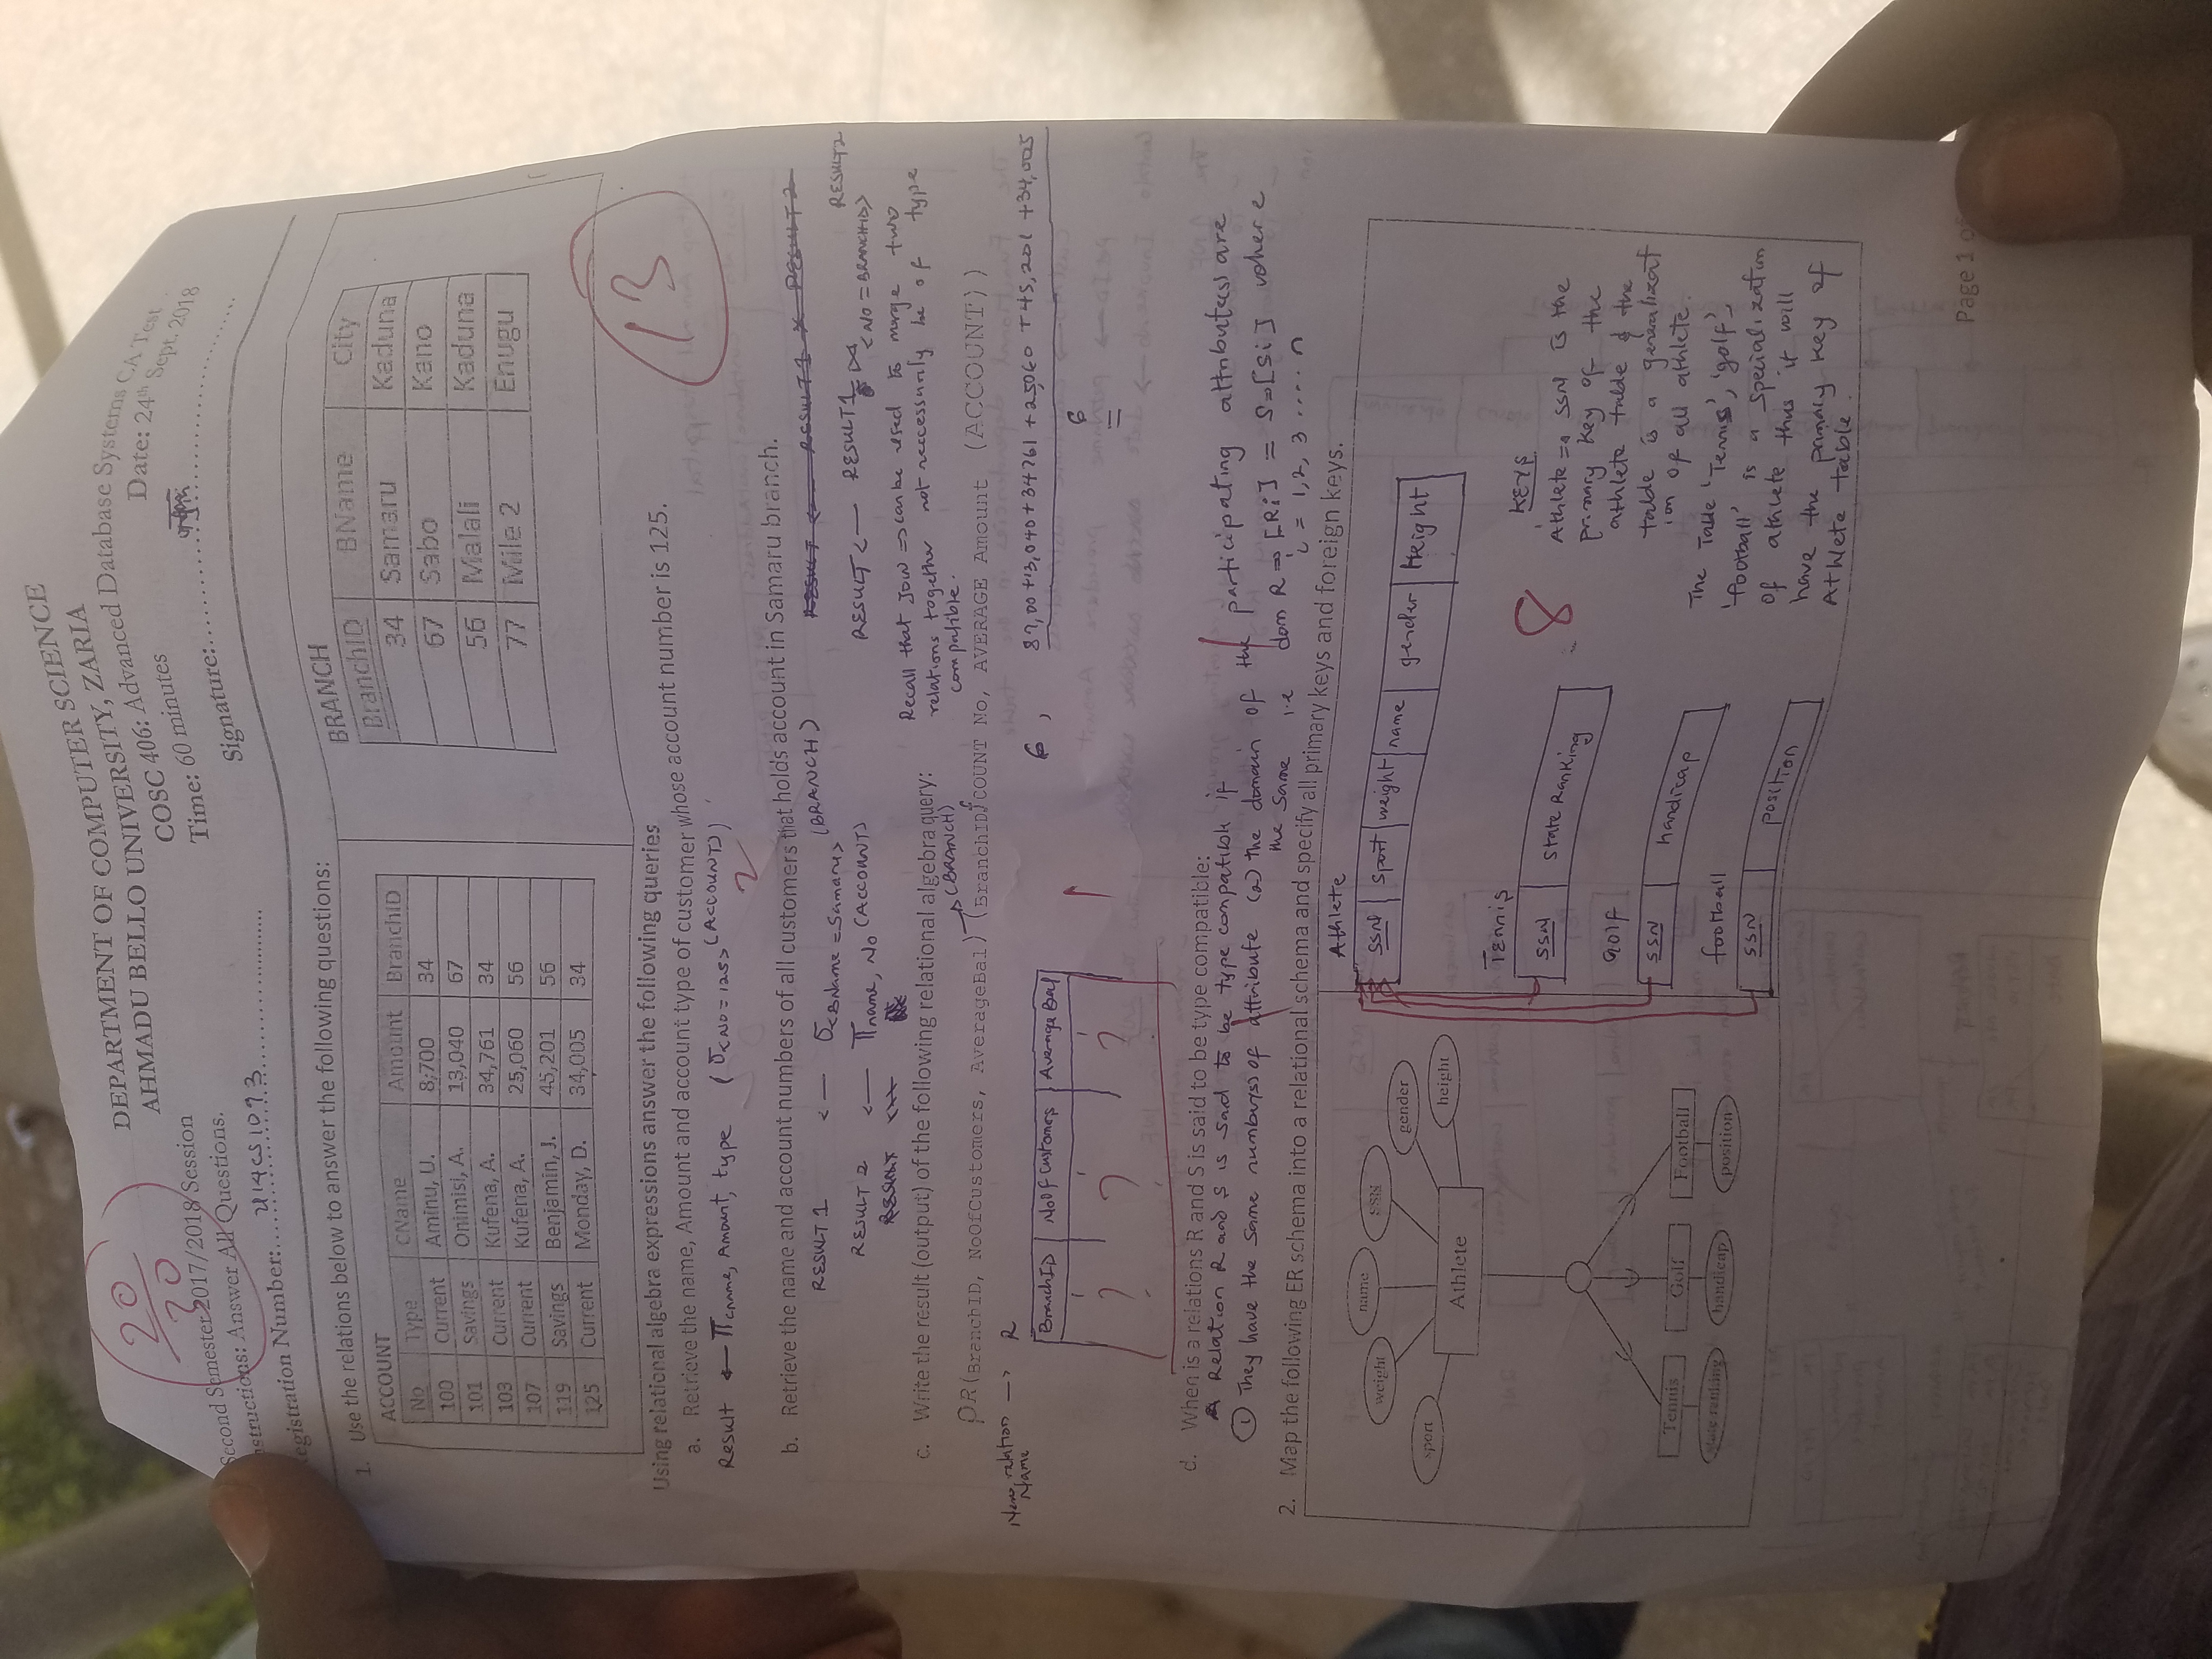 20
30
DEPARTMENT OF COMPUTER SCIENCE
AHMADU BELLO UNIVERSITY, ZARIA
COSC 406: Advanced Database Systems CA Test
Second Semester 2017/2018 Session
Time: 60 minutes
Date: 24th Sept. 2018
nstructions: Answer All Questions.
Signature:
egistration Number: U14CS1093
1. Use the relations below to answer the following questions:
ACCOUNT
No Type CName Amount BranchID
100 Current Aminu, U. 8,700 34
101 Savings Onimisi, A. 13,040 67
103 Current Kufena, A. 34,761 34
107 Current Kufena, A. 25,060 56
119 Savings Benjamin, J. 45,201 56
125 Current Monday, D. 34,005 34
BRANCH
BranchID BName City
34 Samaru Kaduna
67 Sabo Kano
56 Malali Kaduna
77 Mile 2 Enugu
13
Using relational algebra expressions answer the following queries
a. Retrieve the name, Amount and account type of customer whose account number is 125.
Result ← π cname, Amount, type (σ<NO=125> (ACCOUNT))
2
b. Retrieve the name and account numbers of all customers that holds account in Samaru branch.
RESULT 1 <— σ<BName = Samaru> (BRANCH)
RESULT <— RESULT 1 X RESULT 2
RESULT 2 <— π name, No (ACCOUNT)
RESULT <— RESULT 1 ⋈ <NO = BRANCHID> RESULT 2
c. Write the result (output) of the following relational algebra query:
Recall that JOIN => can be used to merge two
relations together not neccessarily be of type
compatible.
(BRANCH)
ρR(BranchID, NoOfCustomers, AverageBal) (BranchID ƒ COUNT No, AVERAGE Amount (ACCOUNT))
New relation Name —> R
BranchID NoOf Customers Average Bal
? ? ?
1
6, 87,00 +13,040+34761 +25060 +45,201 +34,005
6
=
d. When is a relations R and S is said to be type compatible:
A Relation R and S is said to be type compatible if
① They have the same number(s) of attribute (2) the domain of the participating attribute(s) are
the same i.e dom R => [Ri] = S=>[Si] where
i = 1,2, 3 ..... n
2. Map the following ER schema into a relational schema and specify all primary keys and foreign keys.
name
weight
SSN
gender
sport
height
Athlete
Tennis Golf Football
state ranking handicap position
Athlete
SSN sport weight name gender Height
Tennis
SSN State Ranking
golf
SSN handicap
football
SSN position
8
KEYS
Athlete => SSN is the
primary key of the
athlete table & the
table is a generalizat
ion of all athlete.
The Table 'Tennis', 'golf',
'football' is a specialization
of athlete thus it will
have the primary key of
Athlete table.
Page 1 o